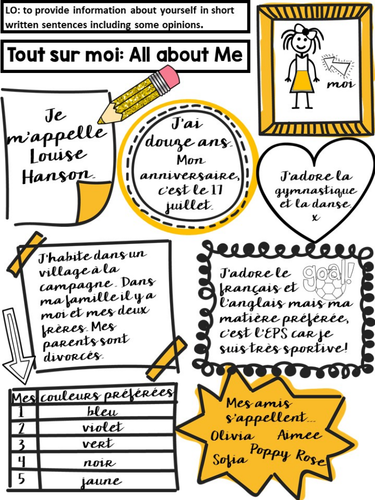 LO: to provide information about yourself in short
written sentences including some opinions.
Tout sur moi: All about Me
moi
Je
m'appelle
Louise
Hanson.
J'ai
douze ans.
Mon
anniversaire,
c'est le 17
juillet.
J'adore la
gymnastique
et la danse
x
J'habite dans un
village à la
campagne. Dans
ma famille il y a
moi et mes deux
frères. Mes
parents sont
divorcés.
goal!
J'adore le
français et
l'anglais mais ma
matière préférée,
c'est l'EPS car je
suis très sportive!
Mes couleurs préférées
1 bleu
2 violet
3 vert
4 noir
5 jaune
Mes amis
s'appellent...
Olivia Aimee
Sofia Poppy Rose